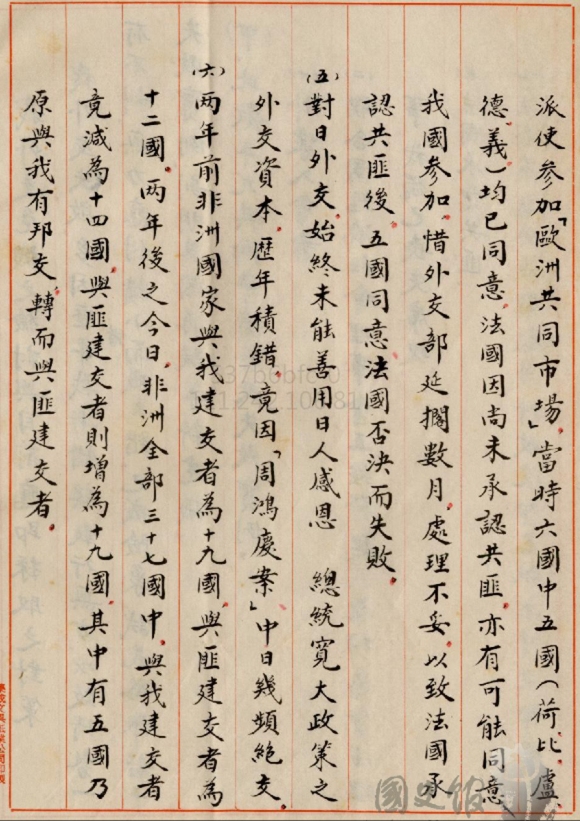 派使參加「歐洲共同市場」當時六國中五國(荷.比.盧.
德.義)均已同意.法國因尚未承認共匪.亦有可能同意
我國參加.惜外交部延擱數月.處理不妥.以致法國承
認共匪後.五國同意法國否決而失敗.
(五)對日外交.始終未能善用日人感恩 總統寬大政策之
外交資本.歷年積錯.竟因「周鴻慶案」中日幾頻絕交.
(六)兩年前非洲國家與我建交者為十九國.與匪建交者為
十二國.兩年後之今日.非洲全部三十七國中.與我建交者
竟減為十四國.與匪建交者則增為十九國.其中有五國乃
原與我有邦交.轉而與匪建交者.
國史館